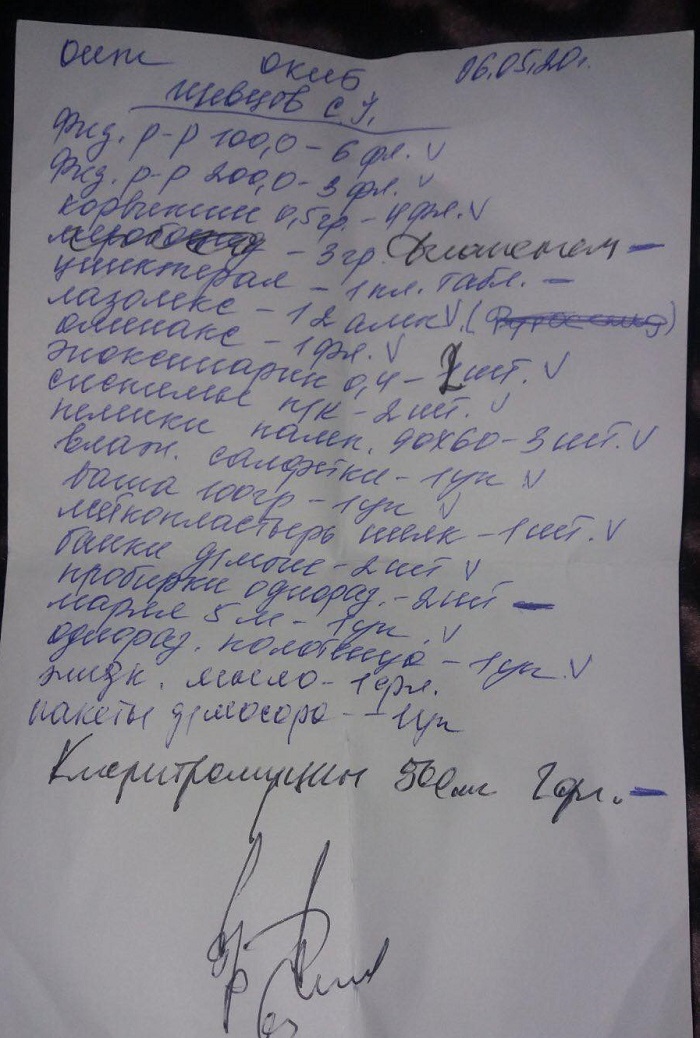 ОИТ ОКИБ 06.05.20г.
Шевцов С.У.
Физ. р-р 100,0 - 6 фл. V
Физ. р-р 200,0 - 3 фл. V
корвикин 0,5гр. - 4фл. V
- 3гр. —
цинктерал - 1 пл. табл. —
лазолекс - 12 амп V. ( )
оменакс - 1фл. V
эноксипарин 0,4 - шт. V
системы п/к - 2 шт. V
пеленки памп. 90х60 - 3 шт. V
влаж. салфетки - 1уп V
вата 100гр - 1уп V
лейкопластырь шелк - 1шт. V
банки д/мочи - 2шт V
пробирки однораз. - 2шт —
марля 5 м - 1уп. V
однораз. полотенца - 1уп. V
жидк. мыло - 1фл.
пакеты д/мусора - 1уп
Кларитромицин 500мг 2фл. —